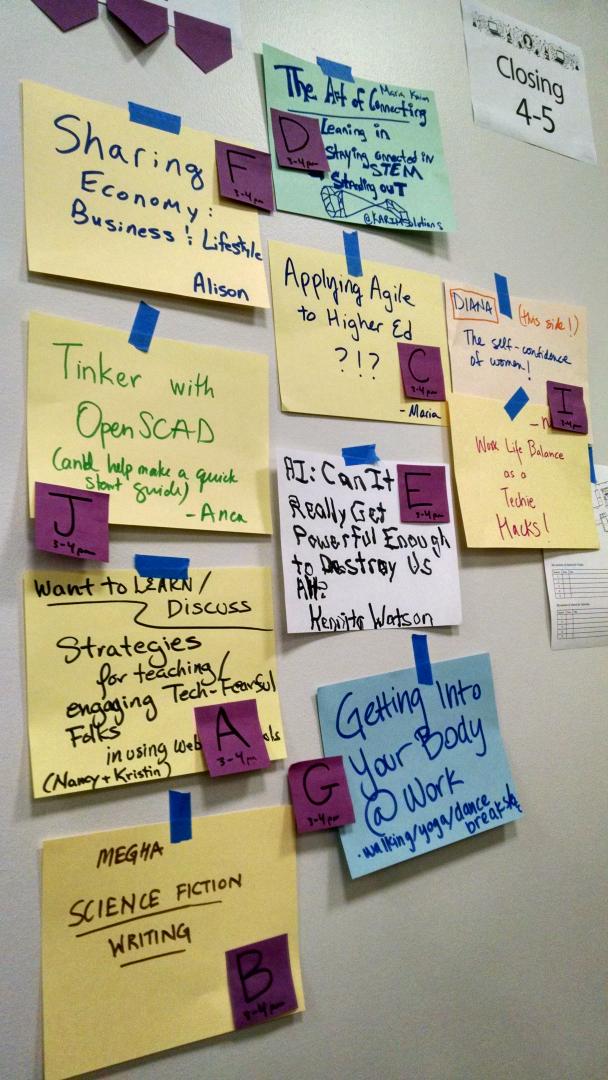 Closing
4-5
The Art of Connecting
Leaning in
Staying connected in
STEM
Standing out
D
3-4pm
Sharing
Economy:
Business & Lifestyle
Alison
F
3-4pm
Applying Agile
to Higher Ed
?!?
- Maria
C
3-4pm
DIANA
(this side!)
The self-confidence
of women!
I
3-4pm
Work Life Balance
as a
Techie
Hacks!
Tinker with
OpenSCAD
(and help make a quick
start guide)
- Anca
J
3-4pm
AI: Can It
Really Get
Powerful Enough
to Destroy Us
All?
Kennita Watson
E
3-4pm
Want to LEARN/
Discuss
Strategies
for teaching/
engaging Tech-Fearful
Folks
in using Web
(Nancy + Kristin)
A
3-4pm
Getting Into
Your Body
@ Work
walking/yoga/dance
breaks
G
3-4pm
MEGHA
SCIENCE FICTION
WRITING
B
3-4pm